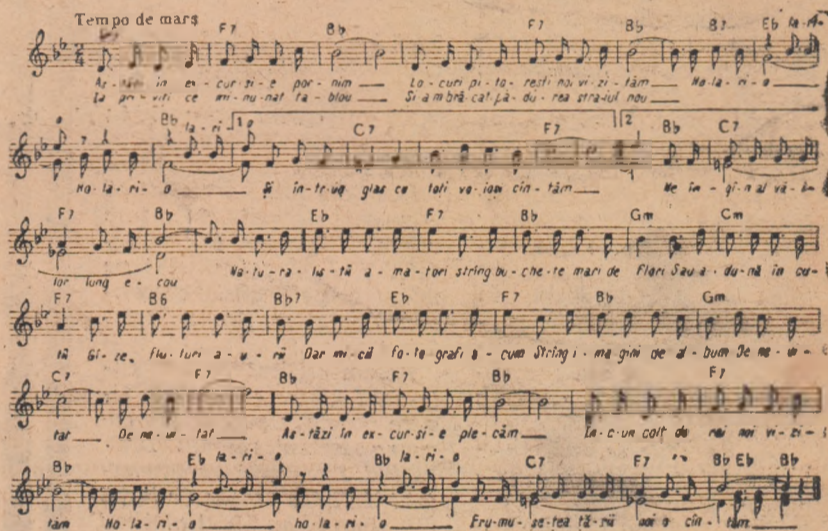 Tempo de marș
F7 Bb F7 Bb B7 Eb la-ri-
As-tăzi în ex-cur-si-e por-nim Lo-curi pi-to-rești noi vi-zi-tăm Ho-la-ri-o
Ia pri-viți ce mi-nu-nat ta-blou Și a îmbră-cat pă-du-rea straiul nou
o Bb la-ri- 1 o C7 F7 2 Bb C7
Ho-la-ri-o Și în-tr-un glas cu toți vo-ioși cîn-tăm Ne în-gî-nal vă-i-
F7 Bb Eb F7 Bb Gm Cm
lor lung e-cou Na-tu-ra-lis-tii a-ma-tori string bu-che-te mari de Flori Sau a-du-nă în cu-
F7 B6 Bb7 Eb F7 Bb Gm
tii Gî-ze, flu-turi a-u-rii Dar mi-cii fo-to grafi a-cum String i-ma-gini de al-bum De ne-ui-
C7 F7 Bb F7 Bb F7
tat De ne-ui-tat As-tăzi în ex-cur-si-e ple-căm colț de rai noi vi-zi-
Bb Eb la-ri-o Bb la-ri-o C7 F7 Bb Eb Bb
tăm Ho-la-ri-o ho-la-ri-o Fru-mu-se-țea tă-rii noi o cîn-tăm